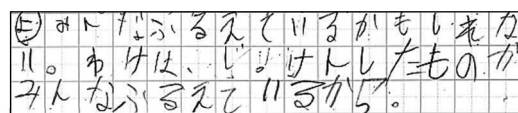 ㋵みんなふるえているかもしれな
い。わけは、じっけんしたものが
みんなふるえているから。